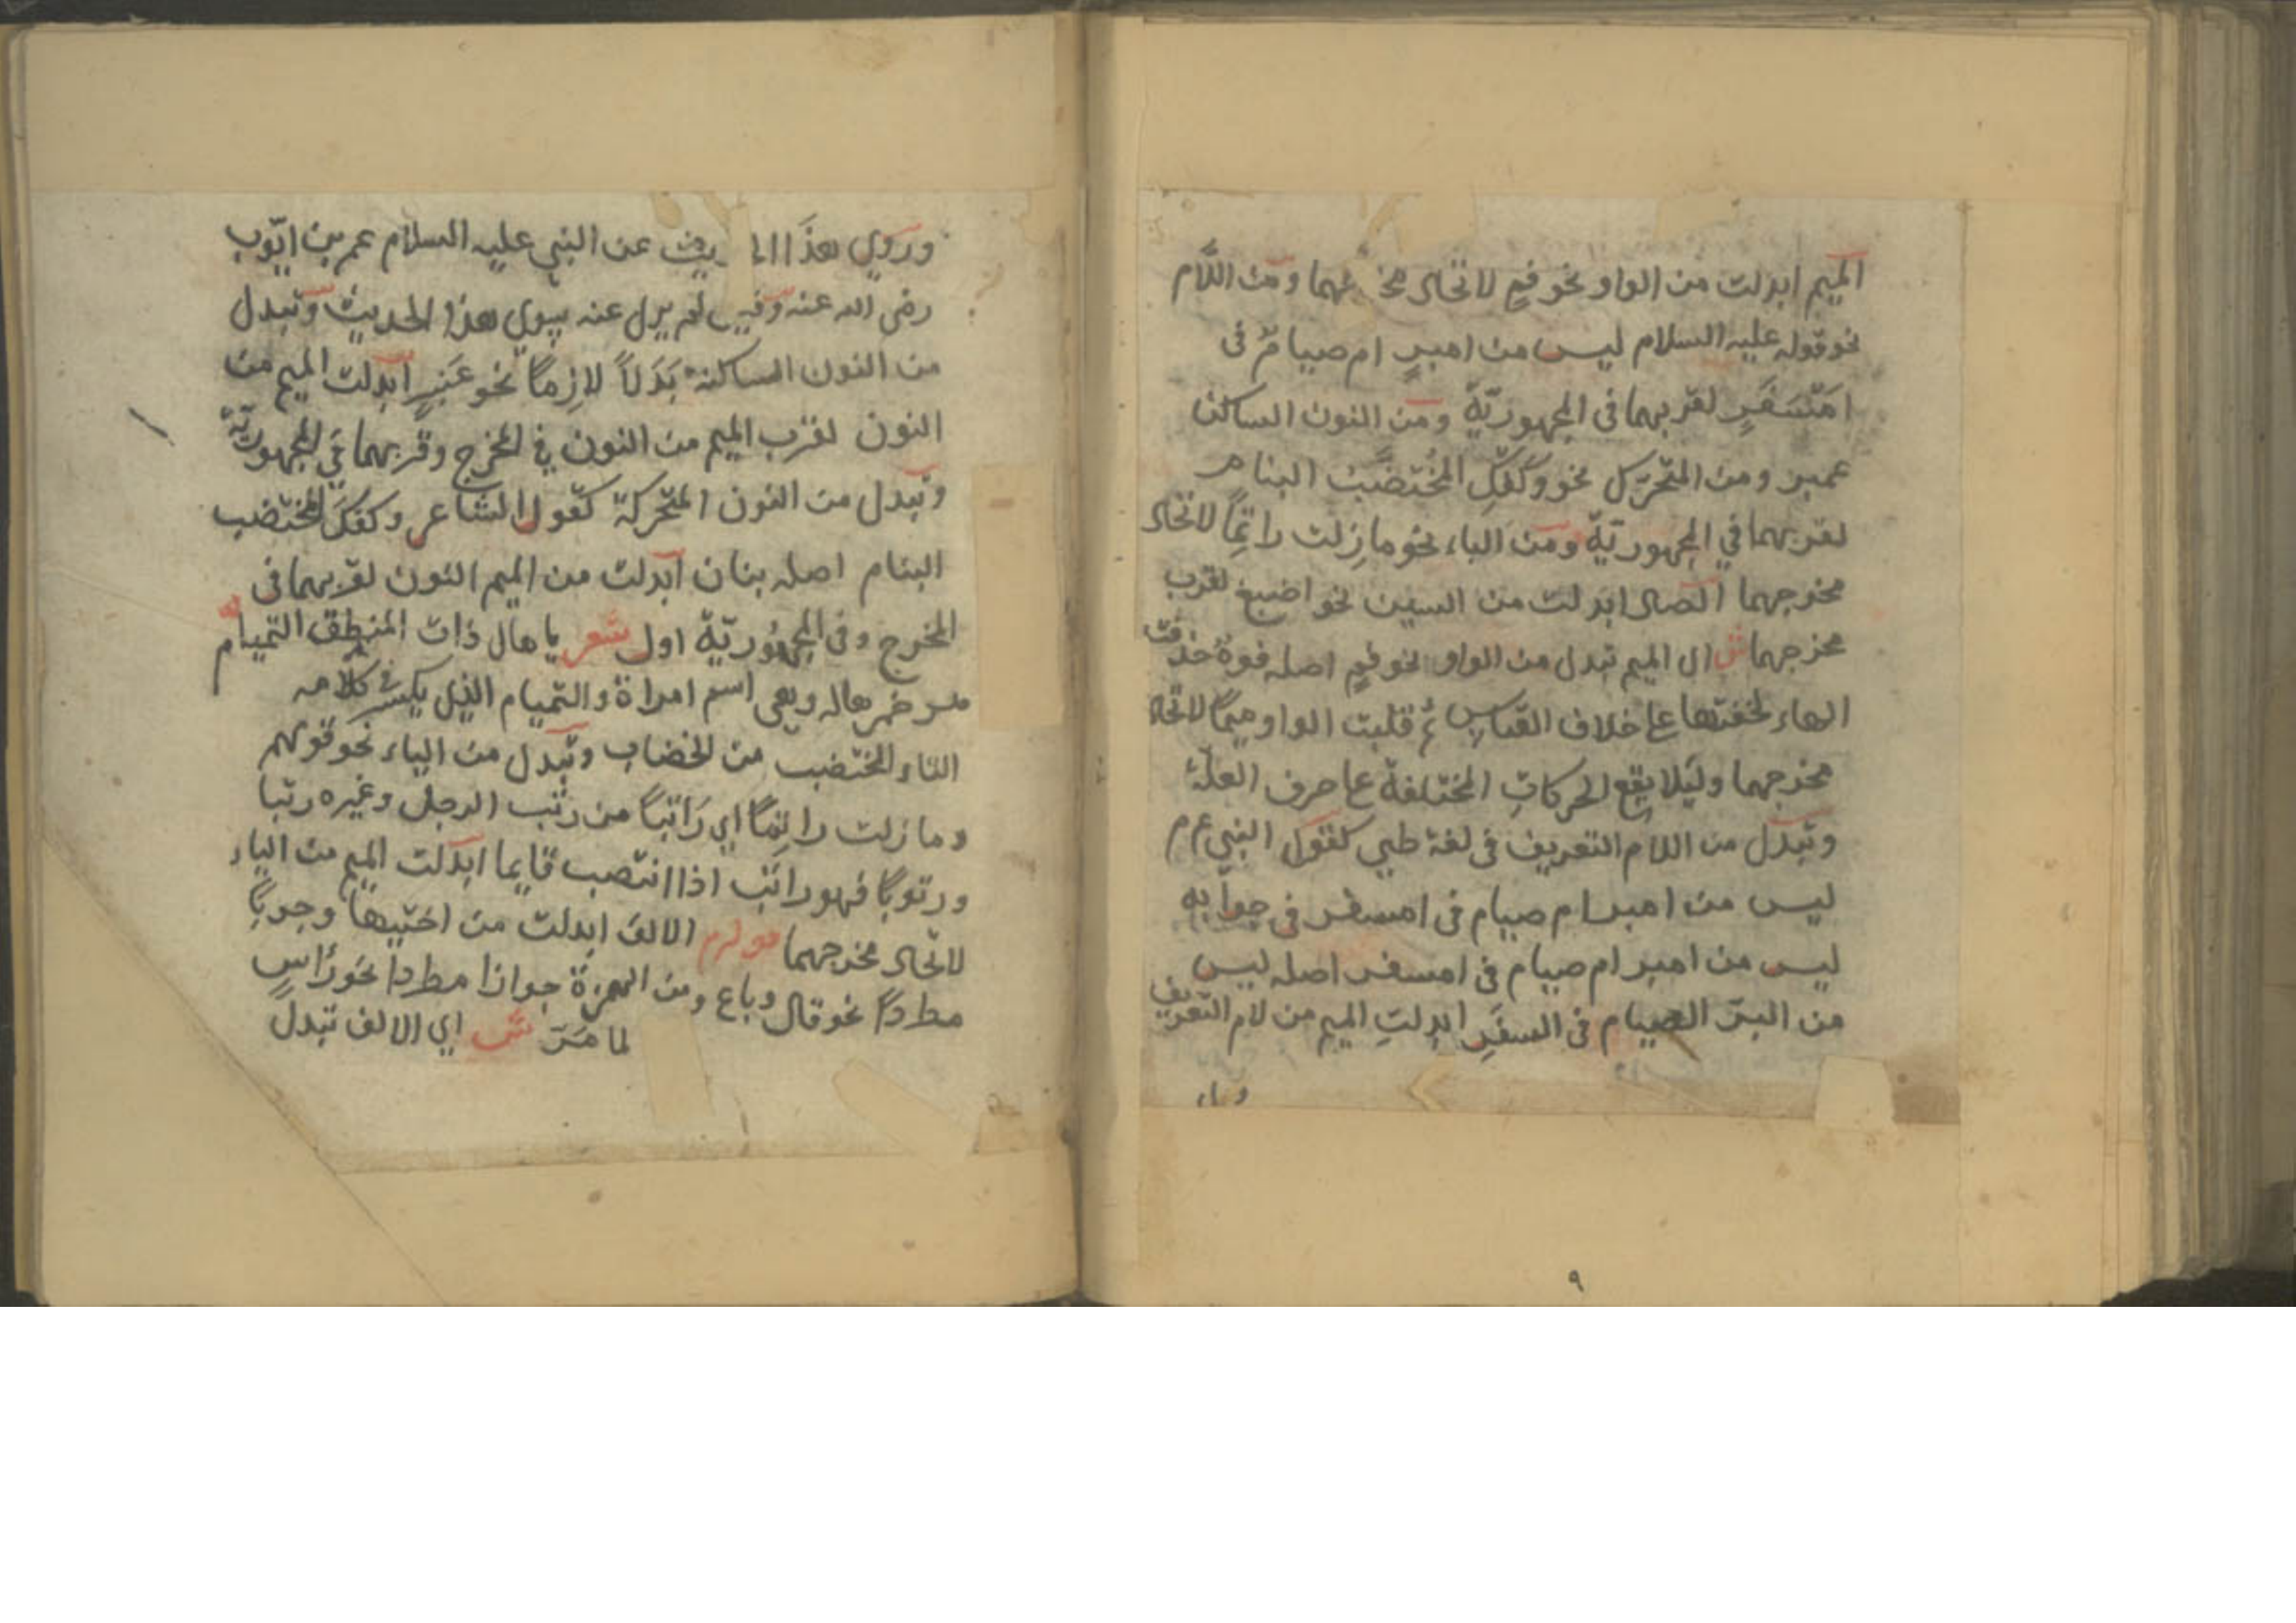 الميم ابدلت من الواو نحو فم لاتحاد مخرجهما ومن اللام
نحو قوله عليه السلام ليس من امبر ام صيام فى
امسَفَرِ لقربهما فى المجهوريّة ومن النون الساكن
عمبر ومن المتحرك نحو وكفّك المُخَتضَّبَ البنام
لقربهما في المجهوريّة ومن الباء نحو ما زلت راتمًا لاتحاد
مخرجهما الصاد ابدلت من السين نحو اصبغ لقرب
مخرجهما ش اى الميم تبدل من الواو نحو فم اصله فوهٌ حذفت
الهاء لخفتها على خلاف القياس ثم قلبت الواو ميمًا لاتحاد
مخرجهما وليَلا يقع الحركاتِ المختلفة على حرف العلّة
وتبدل من اللام التعريف فى لغة طيي كقول النبي ع م
ليس من امبر ام صيام فى امسفر فى جوابه
ليس من امبر ام صيام فى امسفر اصله ليس
من البرّ الصيام فى السفَرِ ابدلتِ الميم من لام التعريف
٩
وروي هذَا الحديث عن النبي عليه السلام عمر بن ايّوب
رضى الله عنه وقيل لم يرل عنه سِوى هذا الحديث وتبدل
من النون الساكنة بَدَلاً لازِمًا نحو عَنبرٍ ابدلت الميم من
النون لقرب الميم من النون في المخرج وقربهما في المجهوريّة
وتبدل من النون المتحركة كقول الشاعر وكفكَ المختضب
البنام اصله بنان ابدلت من الميم النون لقربهما فى
المخرج وفى المجهُوريّة اول شعر يا هال ذات المنطق التميام
مرخم هاله وهى اسم امراة والتميام الذى يكسر فى كلامه
التاء المختضب من الخضاب وتبدل من الباء نحو قولهم
وما زلت راتِمًا اي رَاتبًا من رتب الرجل وغيره رتبا
ورتوبًا فهو راتب اذا انتصب قايما ابدلت الميم من الباء
لاتحاد مخرجهما الالف ابدلت من اختيها وجوبًا
مطردًا نحو قال وباع ومن الهمزة جوازا مطردا نحو رَاسٍ
لما مَرّ ش اي الالف تبدل